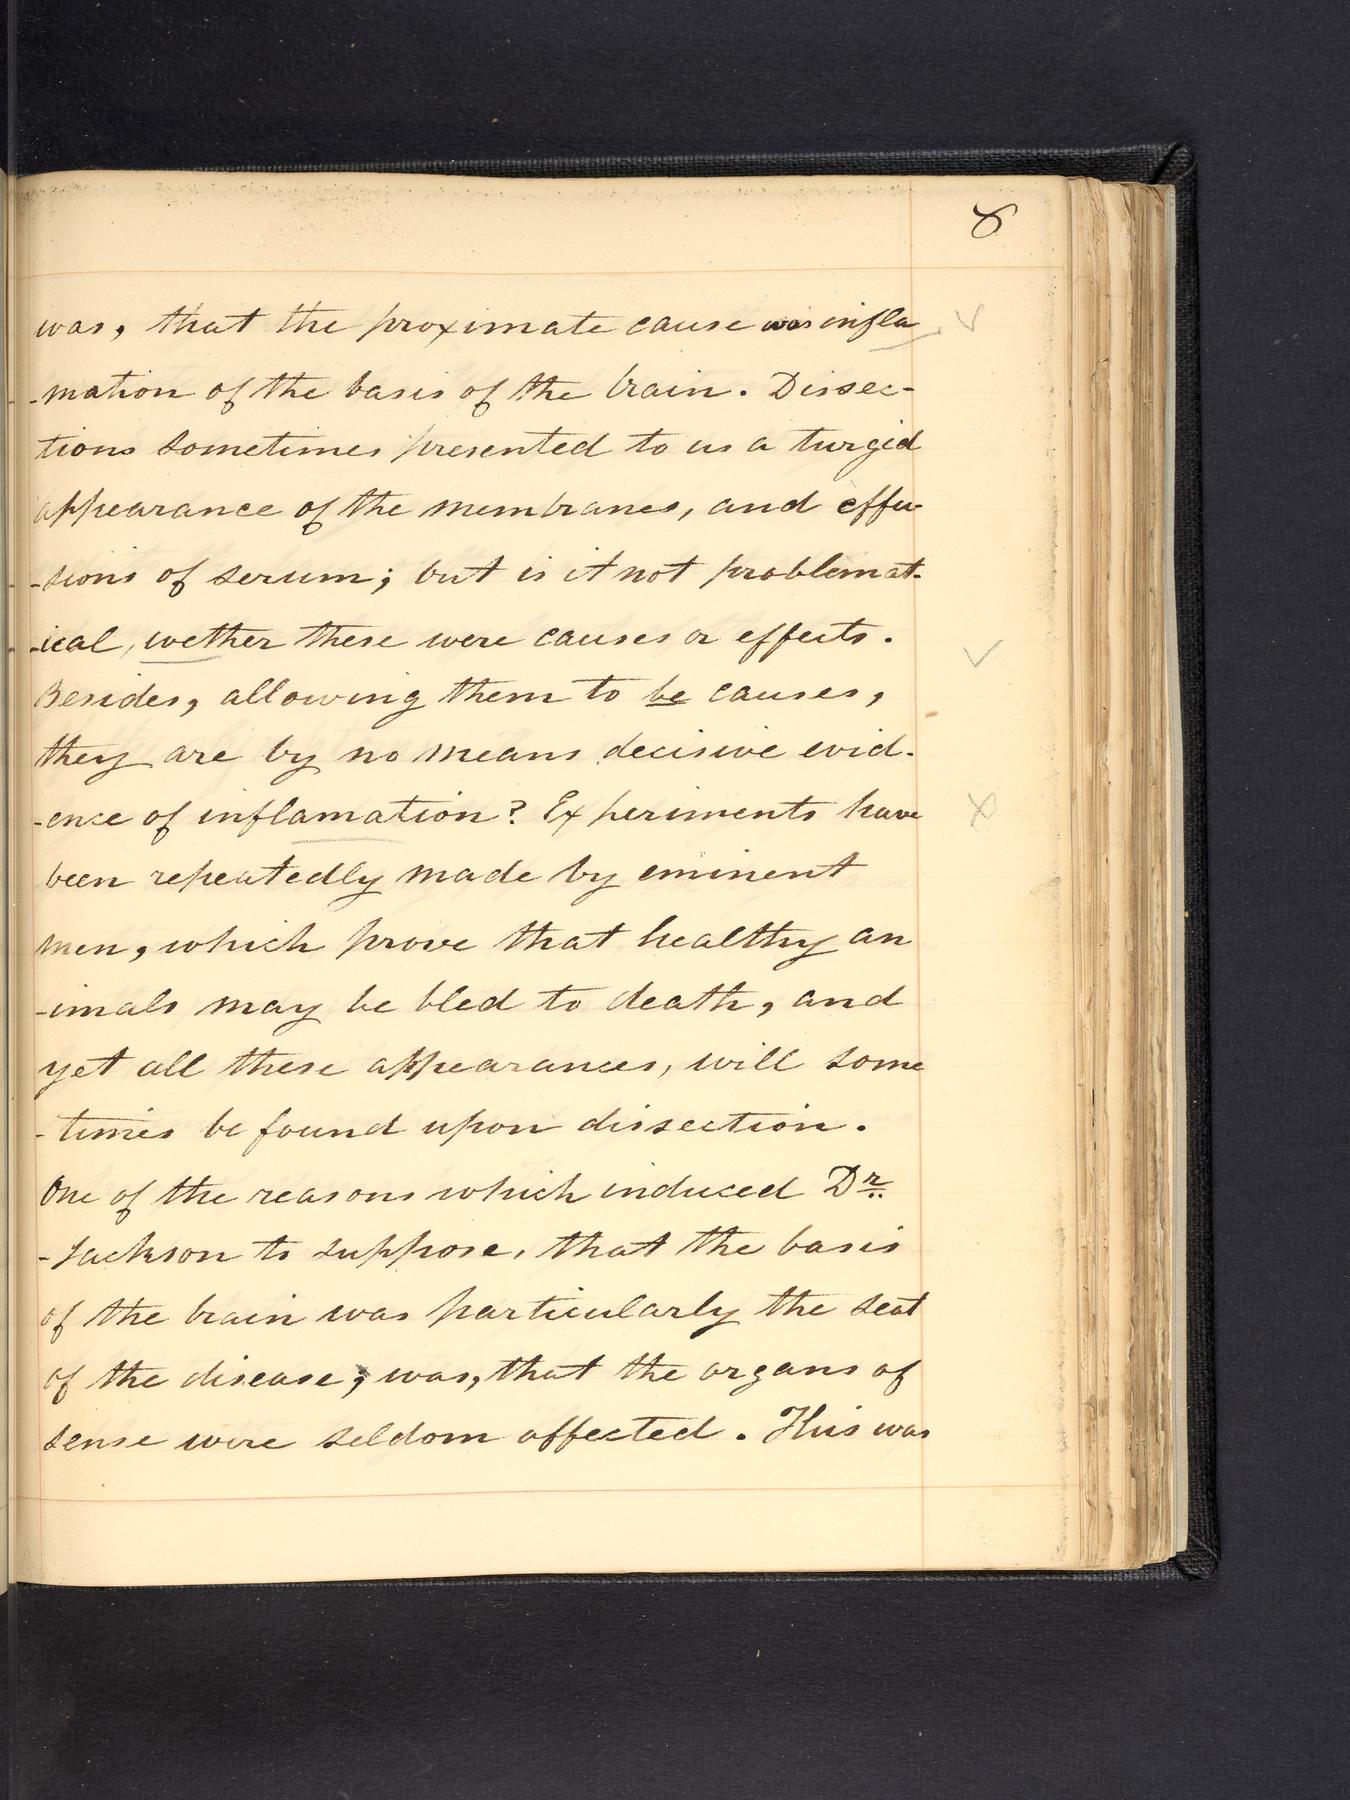 8
was, that the proximate cause was infla
-mation of the basis of the brain. Dissec-
tions sometimes presented to us a turgid
appearance of the membranes, and effu-
-sions of serum; but is it not problemat-
-ical, wether these were causes or effects.
Besides, allowing them to be causes,
they are by no means decisive evid-
-ence of inflamation? Experiments have
been repeatedly made by eminent
men, which prove that healthy an
-imals may be bled to death, and
yet all these appearances, will some
-times be found upon dissection.
One of the reasons which induced Dr.
-Jackson to suppose, that the basis
of the brain was particularly the seat
of the disease, was, that the organs of
sense were seldom affected. This was